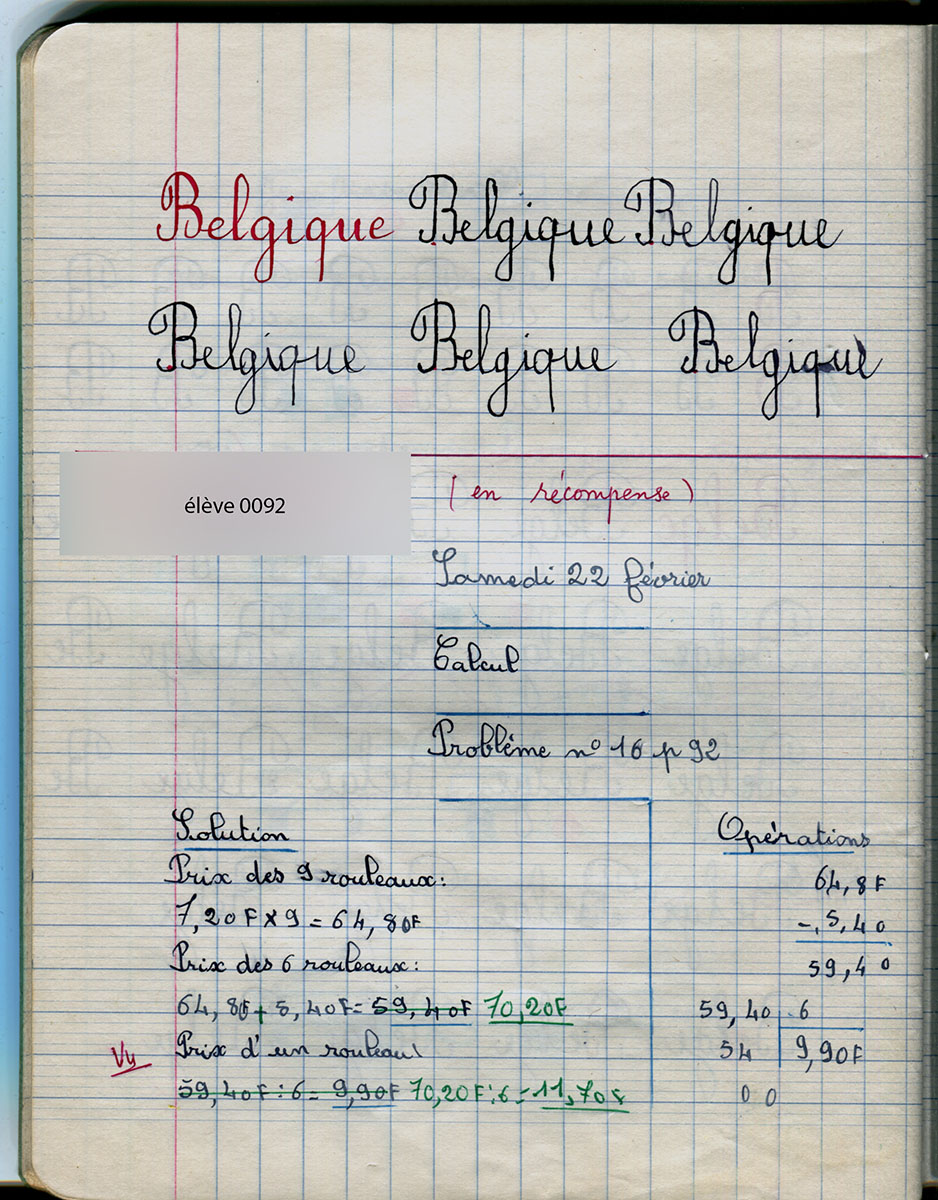 Belgique Belgique Belgique
Belgique Belgique Belgique
élève 0092
(en récompense)
Samedi 22 février
Calcul
Problème n° 16 p 92
Solution
Prix des 9 rouleaux:
7,20F x 9 = 64,80F
Prix des 6 rouleaux:
64,8F + 5,40F = 59,40F 70,20F
Prix d'un rouleau
59,40F : 6 = 9,90F 70,20F : 6 = 11,70F
Vu
Opérations
64,8F
- 5,40
59,40
59,40 6
54 9,90F
00